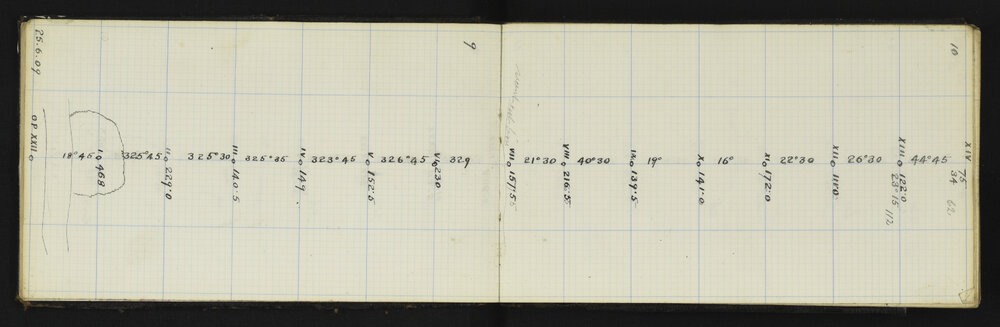 25.6.09
9
10
O.P. XXII
18°45
I 468
325°45
II 229.0
325°30
III 140.5
325°35
IV 149
323°45
V 152.5
326°45
VI 230
329
VII 157.5
21°30
VIII 216.5
40°30
IX 139.5
19°
X 141.0
16°
XI 172.0
22°30
XII 111.0
26°30
XIII 122.0
23°15
112
44°45
XIV 75
34
62